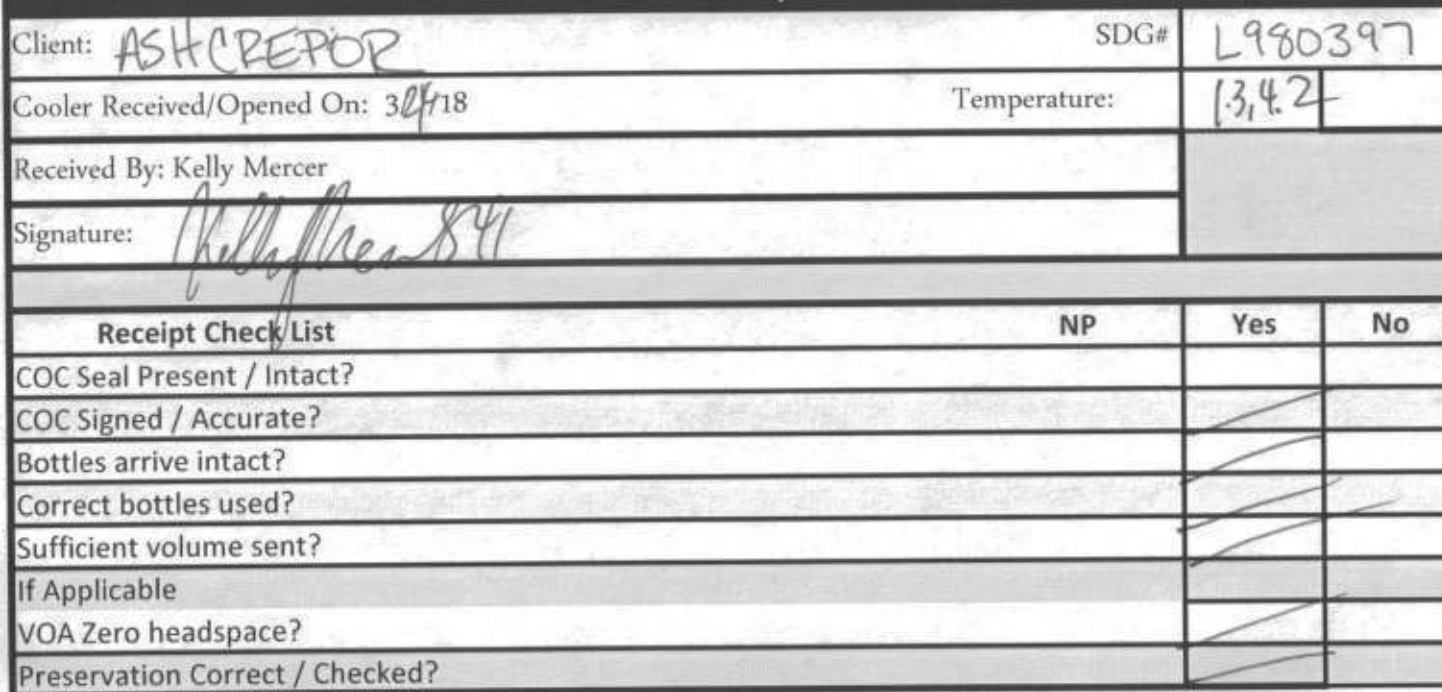 Client: ASHCREPOR SDG# L980397
Cooler Received/Opened On: 3/ /18 Temperature: 1.3, 4.2
Received By: Kelly Mercer
Signature: 841
Receipt Check List NP Yes No
COC Seal Present / Intact?
COC Signed / Accurate?
Bottles arrive intact?
Correct bottles used?
Sufficient volume sent?
If Applicable
VOA Zero headspace?
Preservation Correct / Checked?